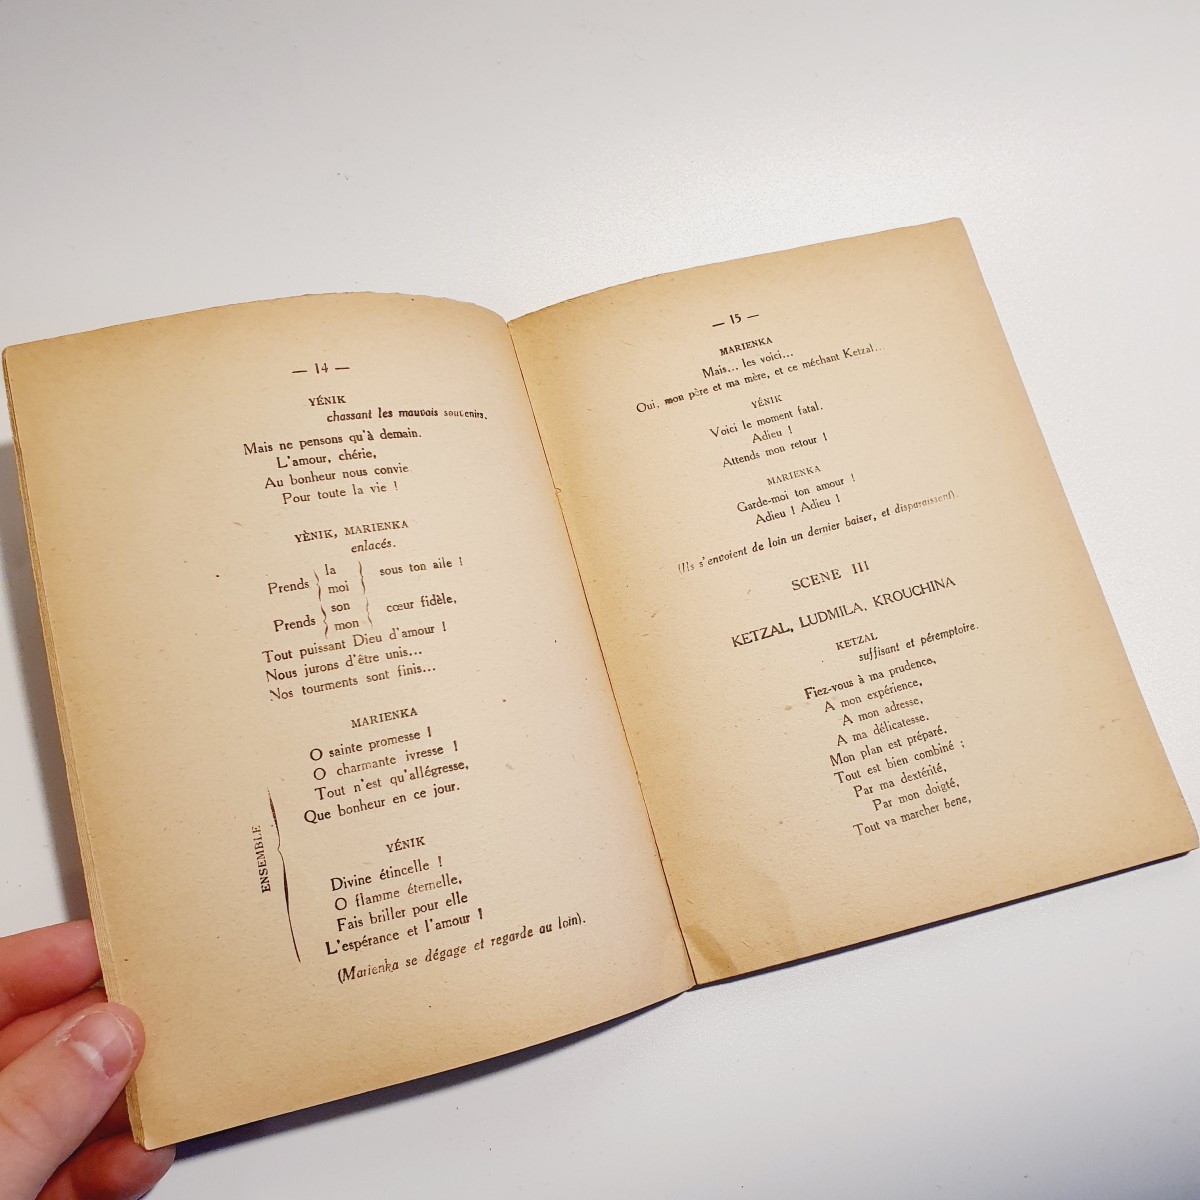 — 14 —
YÉNIK
chassant les mauvais souvenirs.
Mais ne pensons qu'à demain.
L'amour, chérie,
Au bonheur nous convie
Pour toute la vie !
YÈNIK, MARIENKA
enlacés.
Prends { la / moi } sous ton aile !
Prends { son / mon } cœur fidèle,
Tout puissant Dieu d'amour !
Nous jurons d'être unis...
Nos tourments sont finis...
MARIENKA
O sainte promesse !
O charmante ivresse !
Tout n'est qu'allégresse,
Que bonheur en ce jour.
ENSEMBLE
YÉNIK
Divine étincelle !
O flamme éternelle,
Fais briller pour elle
L'espérance et l'amour !
(Marienka se dégage et regarde au loin).
— 15 —
MARIENKA
Mais... les voici...
Oui, mon père et ma mère, et ce méchant Ketzal...
YÉNIK
Voici le moment fatal.
Adieu !
Attends mon retour !
MARIENKA
Garde-moi ton amour !
Adieu ! Adieu !
(Ils s'envoient de loin un dernier baiser, et disparaissent).
SCENE III
KETZAL, LUDMILA, KROUCHINA
KETZAL
suffisant et péremptoire.
Fiez-vous à ma prudence,
A mon expérience,
A mon adresse,
A ma délicatesse.
Mon plan est préparé.
Tout est bien combiné ;
Par ma dextérité,
Par mon doigté,
Tout va marcher bene,